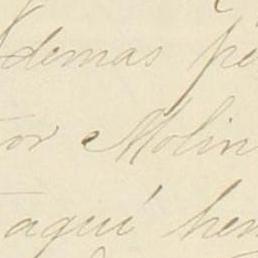 Ademas
tor Molin
aquí hem